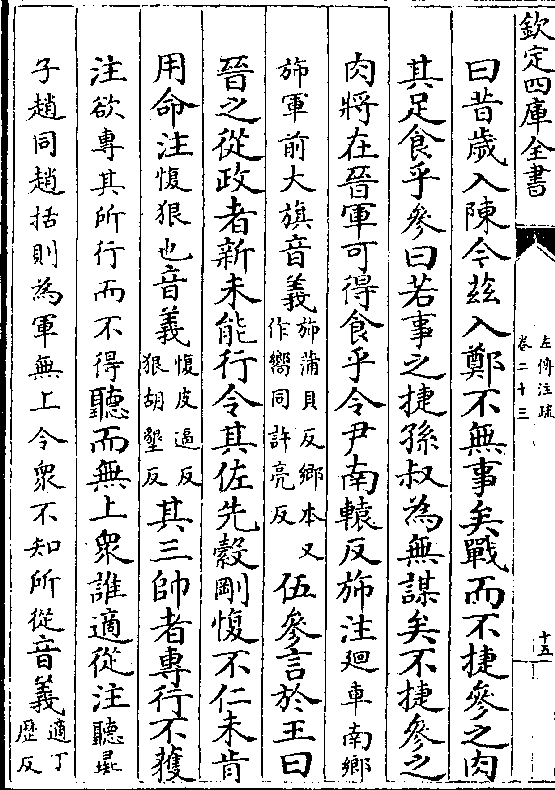 欽定四庫全書
左傳注疏
卷二十三
十五
曰昔歲入陳今兹入鄭不無事矣戰而不捷參之肉
其足食乎參曰若事之捷孫叔為無謀矣不捷參之
肉將在晉軍可得食乎令尹南轅反斾注廻車南鄉
斾軍前大旗音義斾蒲貝反鄉本又作嚮同許亮反伍參言於王曰
晉之從政者新未能行令其佐先縠剛愎不仁未肯
用命注愎狠也音義愎皮逼反狠胡墾反其三帥者專行不獲
注欲專其所行而不得聽而無上衆誰適從注聽彘
子趙同趙括則為軍無上令衆不知所從音義適丁歷反